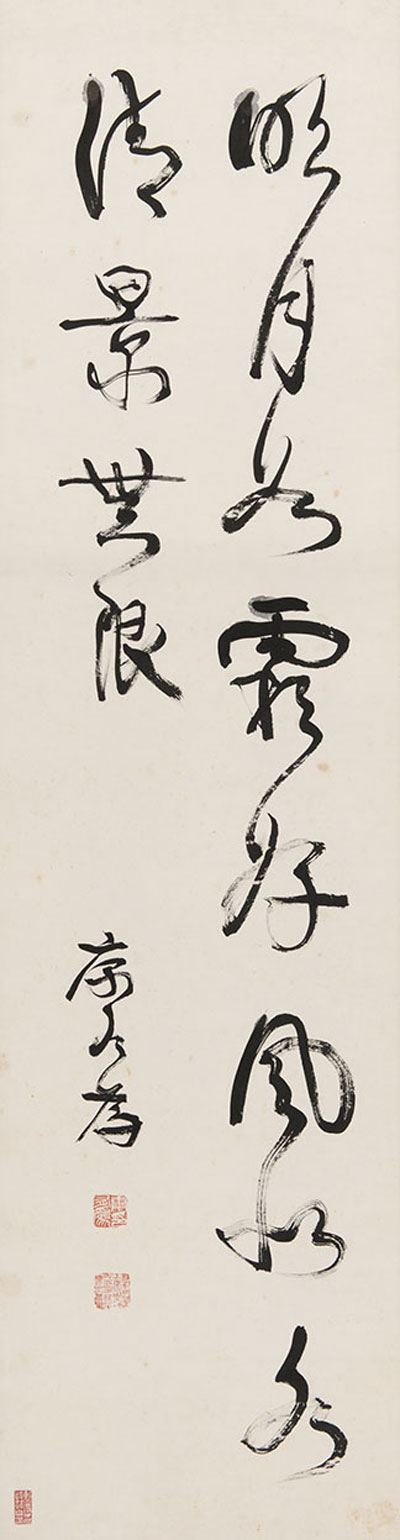 明月如霜好風如水
清景無限